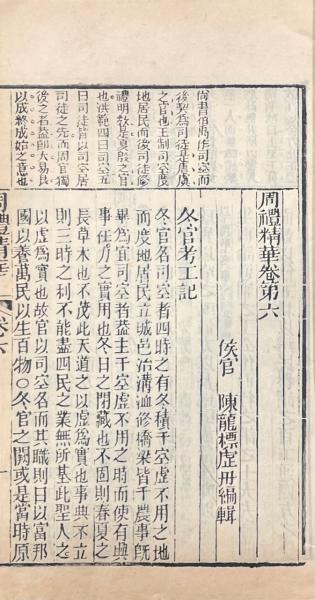 周禮精華卷第六
侯官 陳龍標虛舟編輯
冬官考工記
冬官名司空者四時之有冬積于空虛不用之地
而度地居民立城邑治溝洫修橋梁皆于農事旣
畢爲宜司空者蓋主于空虛不用之時而使有興
事任力之實用也冬日之閉藏也不固則春夏之
長草木也不茂此天道之以虛爲實也事典不立
則三時之利不能盡四民之業無所基此聖人之
以虛爲實也故官以司空名而其職則曰以富邦
國以養萬民以生百物○冬官之闕或是當時原
尚書伯禹作司空而
後契爲司徒是唐虞
之官也王制司空度
地居民而後司徒修
禮明敎是夏殷之官
也洪範四曰司空五
曰司徒皆以司空居
司徒之先而周官獨
後之者蓋卽大易艮
以成終成始之意也
周禮精華 卷六